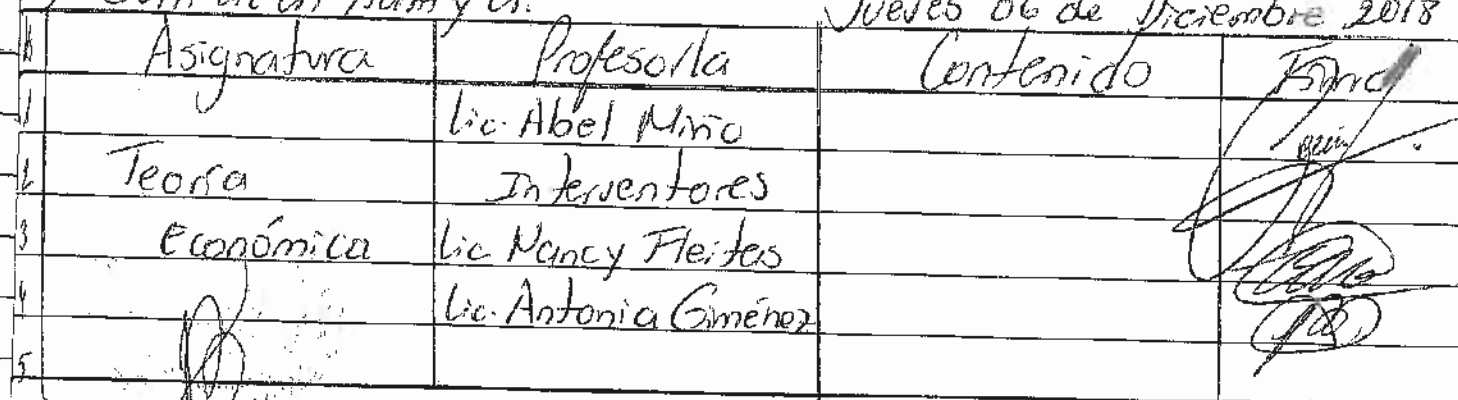 Jueves 06 de Diciembre 2018
Asignatura Profesor/la Contenido Firma
1 Lic. Abel Miño
2 Teoría Interventores
3 Económica Lic Nancy Fleitas
4 Lic. Antonia Giménez
5